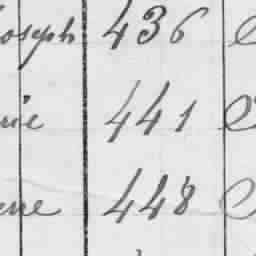 oseph 436
rie 441
erre 448